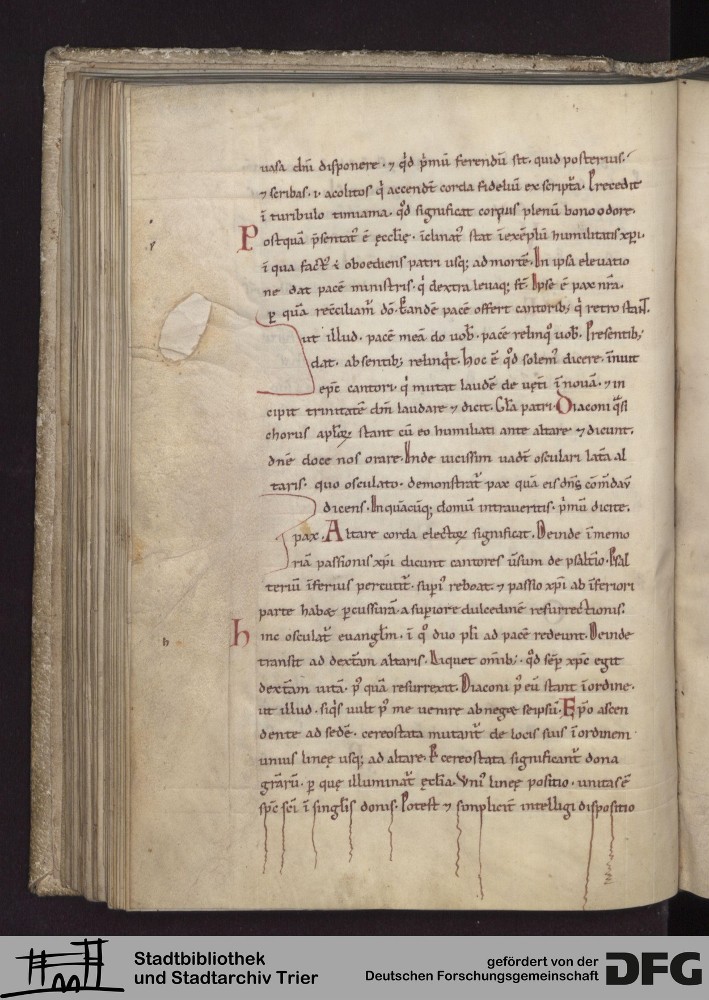 uasa dn̄i disponere · ⁊ qḋ p̄mū ferendū sit · quid posterius ·
⁊ scribas · i · acolitos q̇ accendt̄ corda fideliū ex script̄a · Precedit
ī turibulo timiama · qḋ significat corpus plenū bono odore ·
Postquā p̄sentat᷒ ē ęccl̄ię · īclinat᷒ stat ī exēplū humilitatis xp̄i ·
ī qua fact᷒ ē oboediens patri usq; ad mortē · In ipsa eleuatio
ne dat pacē ministris · q̇ dextra leuaq; st̄ · Ipse ē pax nr̄a ·
ꝑ quā rec̄ciliam᷒ dō · Tandē pacē offert cantorib; q̇ retro stant ·
ut illud · pacē meā do uob̄ · pacē relinqͦ uob̄ · Presentib;
dat · absentib; relinqͥt · Hoc ē qḋ solem᷒ dicere · īnuit
ep̄c cantori · q̇ mutat laudē de uet̄i ī nouā · ⁊ in
cipit trinitatē dn̄i laudare ⁊ dicit · Gl̄a patri · Diaconi qͣsi
chorus apl̄oꝝ stant cū eo humiliati ante altare ⁊ dicunt ·
dn̄e doce nos orare · Inde uicissim uadt̄ osculari lat̄a al
taris · quo osculato · demonstrat᷒ pax quā eis dn̄s com̄dav̄
dicens · In quācūq; domū intraueritis · p̄mū dicite ·
pax · Altare corda electoꝝ significat · Deinde ī memo
riā passionis xp̄i dicunt cantores u̅sum de psalt̄io · Psal
teriū īferius percutit᷒ · supi᷒ reboat · ⁊ passio xp̄i ab īferiori
parte habꝫ ꝑcussurā · a superiore dulcedinē resurrectionis ·
Hinc osculat᷒ euangl̄m · ī qͦ duo pl̄i ad pacē redeunt · Deinde
transit ad dext̄am altaris · Liquet om̄ib; · qḋ sēp xp̄c egit
dext̄am uitā · p᷒ quā resurrexit · Diaconi p᷒ eū stant ī ordine ·
ut illud · siqͥs uult p᷒ me uenire abnegꝫ seipsū · Ep̄o ascen
dente ad sedē · cereostata mutant᷒ de locis suis ī ordinem
unius linęę usq; ad altare · Pͬ cereostata significant᷒ dona
gr̄arū · ꝑ quę illuminat᷒ ęccl̄ia · Vni᷒ linęę positio · unitas ē
sp̄c sc̄i ī singl̄is donis · Potest ⁊ simplicit̄ intelligi dispositio
h
Stadtbibliothek
und Stadtarchiv Trier
gefördert von der
Deutschen Forschungsgemeinschaft
DFG